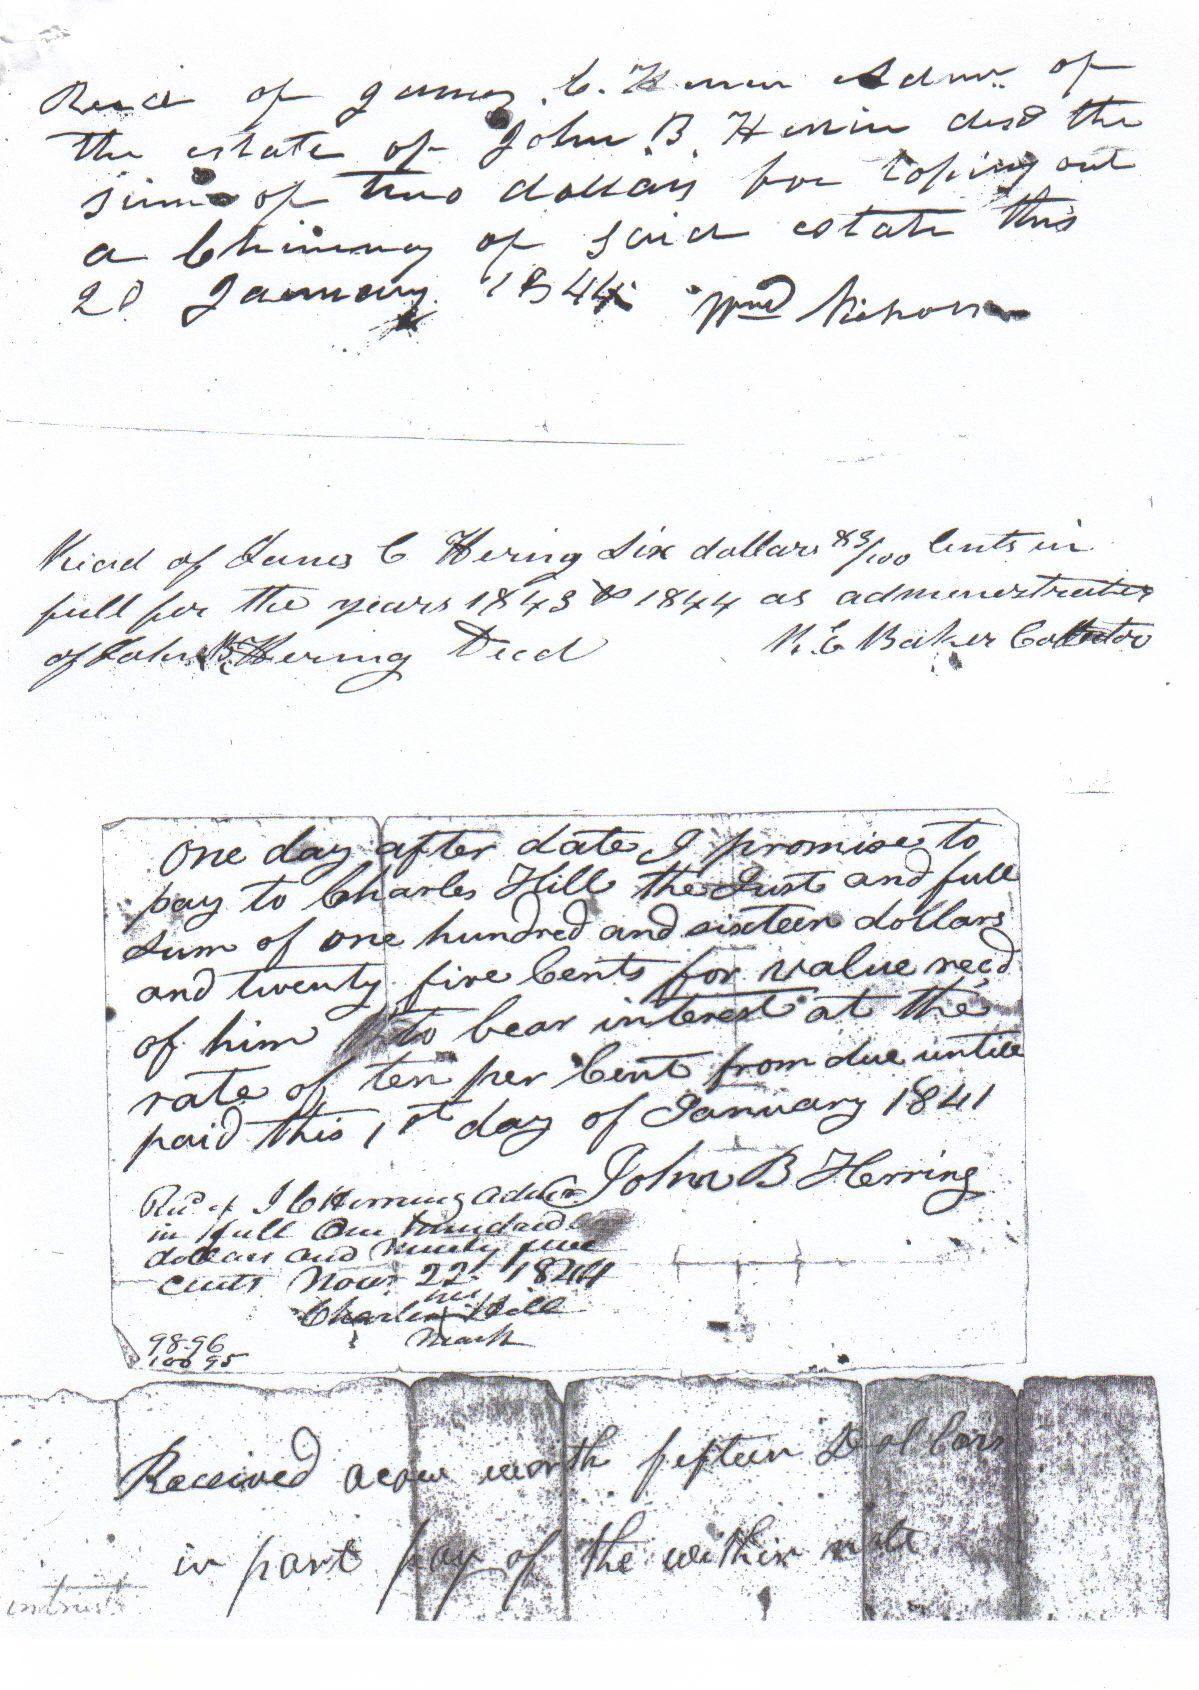 Recd of James C. Herrin Admr of
the estate of John B. Herrin desd the
sum of two dollars for toping out
a Chimney of said estate this
20 January 1844 Wm Nichols
Recd of James C Hering Six dollars 83/100 Cents in
full for the years 1843 & 1844 as admenestrator
of John B Hering Decd R. C Baker Collector
One day after date I promise to
pay to Charles Hill the Just and full
Sum of one hundred and sixteen dollars
and twenty five Cents for value recd
of him to bear interest at the
rate of ten per Cent from due untill
paid this 1st day of January 1841
John B Herring
Recd of J C Herring Admr
in full One hundred
dollars and Ninety five
cents Novr 22 1844
his
Charles Hill
mark
98.96
100 95
Received a cow worth fifteen Dollars
in part pay of the within note